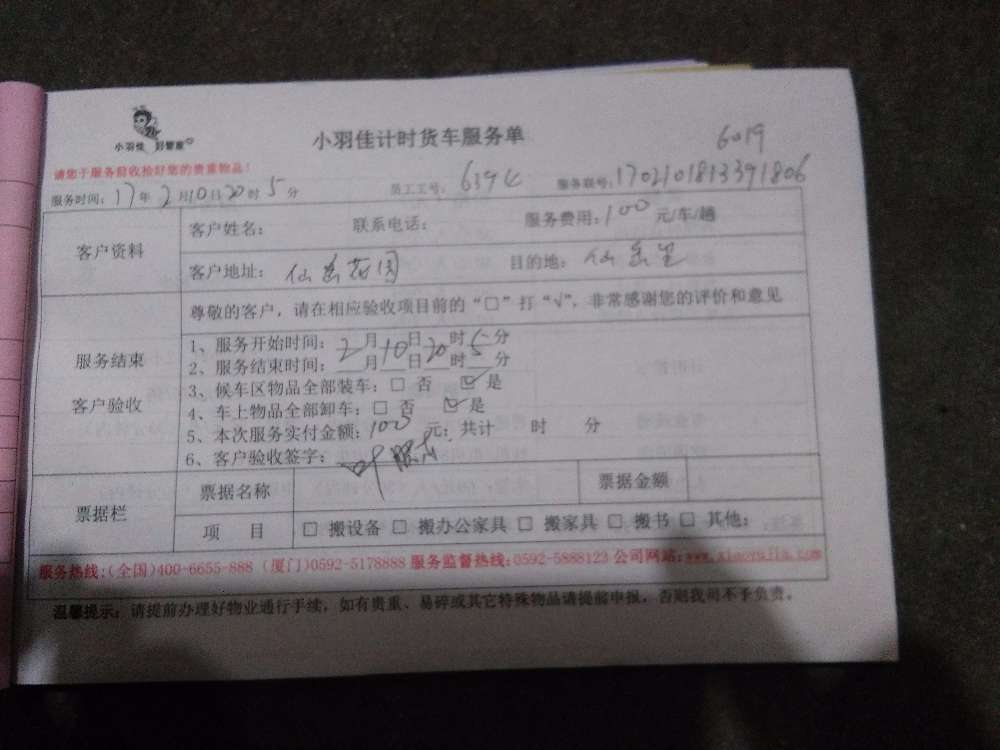 小羽佳 好管家
小羽佳计时货车服务单
6019
请您于服务前收拾好您的贵重物品！
服务时间：17年2月10日20时5分 员工工号：6394 服务联号：1702101813391806
客户资料
客户姓名： 联系电话： 服务费用：100元/车/趟
客户地址：仙岳花园 目的地：仙岳里
服务结束
客户验收
尊敬的客户，请在相应验收项目前的“□”打“√”，非常感谢您的评价和意见
1、服务开始时间：2月10日20时5分
2、服务结束时间：__月__日__时__分
3、候车区物品全部装车：□ 否 ☑ 是
4、车上物品全部卸车：□ 否 ☑ 是
5、本次服务实付金额：100元；共计 时 分
6、客户验收签字：叶
票据栏
票据名称 票据金额
项 目 □ 搬设备 □ 搬办公家具 □ 搬家具 □ 搬书 □ 其他：
服务热线：(全国)400-6655-888 (厦门)0592-5178888 服务监督热线：0592-5888123 公司网站：www.xiaoyujia.com
温馨提示：请提前办理好物业通行手续，如有贵重、易碎或其它特殊物品请提前申报，否则我司不予负责。